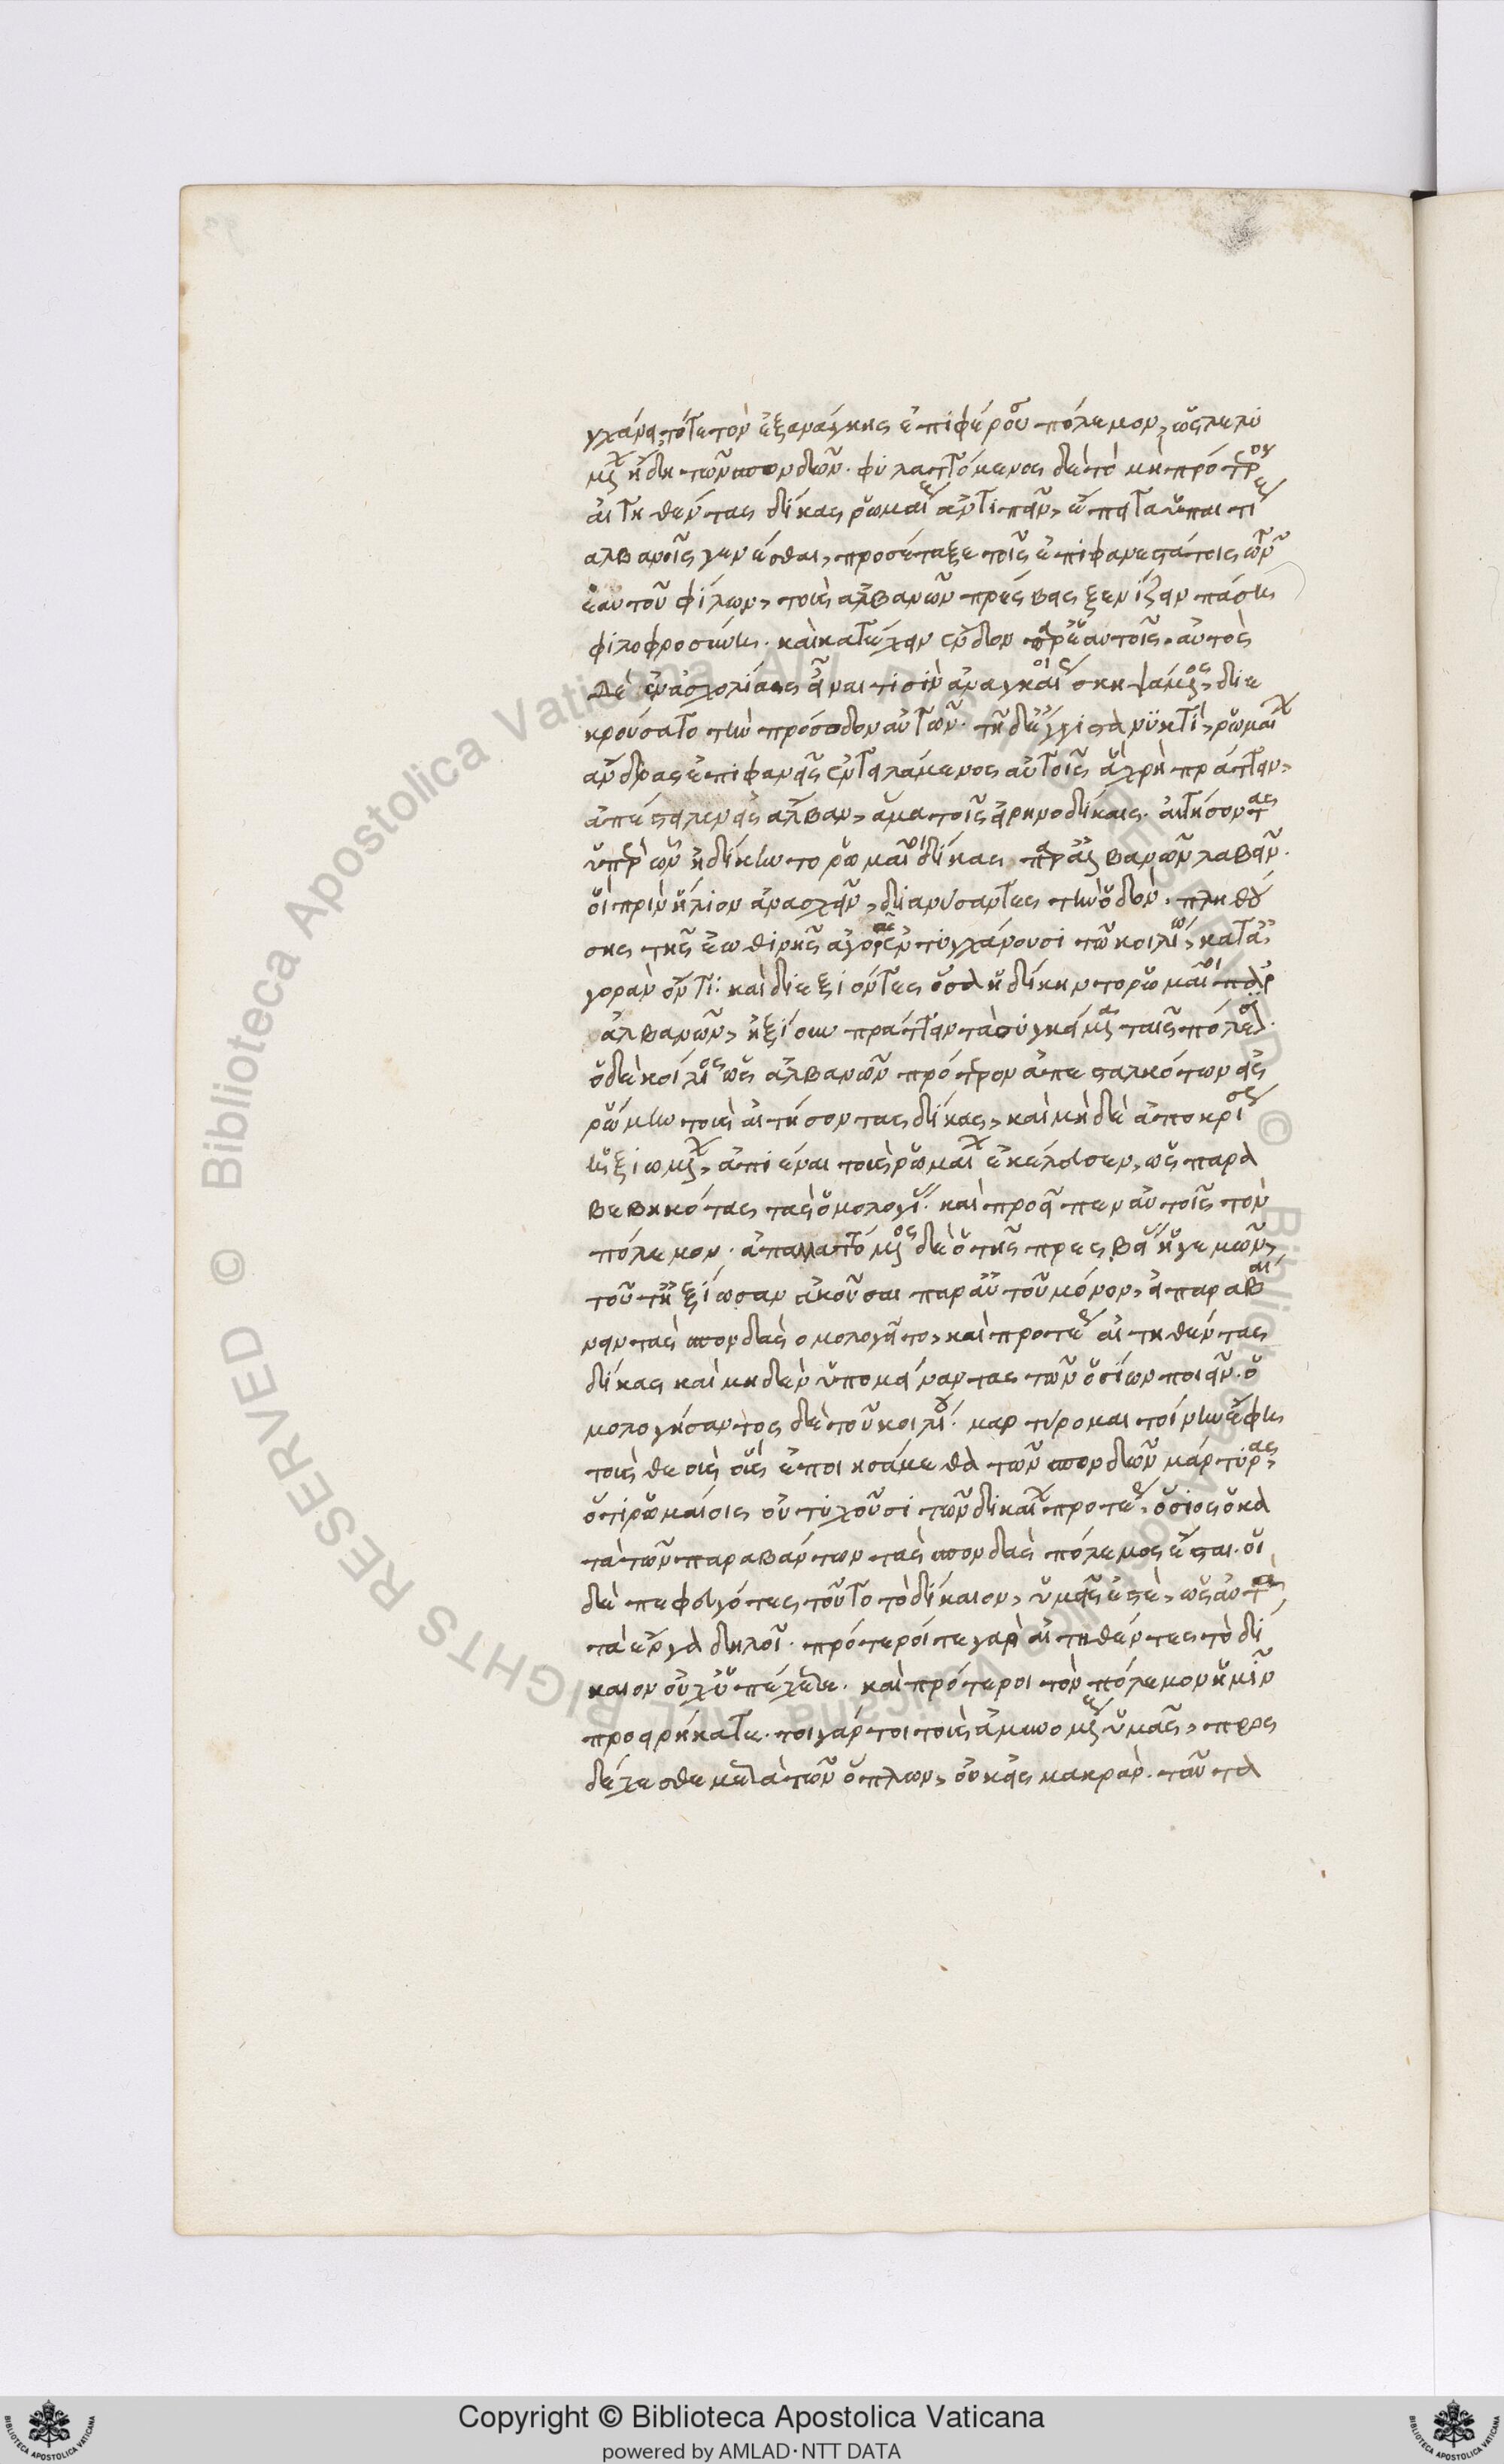 γχάνει, τότε τὸν ἐξ ἀνάγκης ἐπιφέρουσι πόλεμον, ὡς λελυ
μένων ἤδη τῶν σπονδῶν. φυλαττόμενος δὲ τὸ μὴ πρότερον
αἰτηθέντας δίκας ῥωμαίους ἀντιπεῖν, ἔπειτα ὑπαιτίους
αλβανοῖς γενέσθαι, προσέταξε τοῖς ἐπιφανεστάτοις τῶν
ἑαυτοῦ φίλων, τοὺς ἀλβανῶν πρέσβεις ξενίζειν πάσῃ
φιλοφροσύνῃ. καὶ κατέχειν ἔνδον παρ' ἑαυτοῖς. αὐτὸς
δὲ ἐν ἀσχολίαις εἶναι τισὶν ἀναγκαίαις σκηψάμενος, διε
κρούσατο τὴν πρόσοδον αὐτῶν. τῇ δ' ἔγγιστα νυκτὶ, ῥωμαίων
ἄνδρας ἐπιφανεῖς ἐντειλάμενος αὐτοῖς ἃ χρὴ πράττειν,
ἀπέστειλεν εἰς ἄλβαν, ἅμα τοῖς εἰρηνοδίκαις. αἰτήσοντας
ὑπὲρ ὧν ἠδίκηντο ῥωμαῖοι δίκας παρ' ἀλβανῶν λαβεῖν.
οἳ πρὶν ἥλιον ἀνασχεῖν, διανύσαντες τὴν ὁδὸν. πληθού
σης τῆς ἑωθινῆς ἀγορᾶς ἐντυγχάνουσι τῶ κοιλίω, κατ' ἀ
γορὰν ὄντι. καὶ διεξιόντες ὅσα ἠδίκηντο ῥωμαῖοι παρ'
ἀλβανῶν, ἠξίουν πράττειν τὰ συγκείμενα ταῖς πόλεσι.
ὁ δὲ κοίλιος ὡς ἀλβανῶν πρότερον ἀπεσταλκότων εἰς
ῥώμην τοὺς αἰτήσοντας δίκας, καὶ μηδὲ ἀποκρίσεως
ἠξιωμένων, ἀπιέναι τοὺς ῥωμαίους ἐκέλευσεν, ὡς παρα
βεβηκότας τὰς ὁμολογίας. καὶ προεῖπεν αὐτοῖς τὸν
πόλεμον. ἀπαλλαττόμενος δὲ ὁ τῆς πρεσβείας ἡγεμὼν,
τοῦτ' ἠξίωσεν ἀκοῦσαι παρ' αὐτοῦ μόνον, εἰ παραβαί
νειν τὰς σπονδὰς ομολογεῖ τοὺς προτέρους αἰτηθέντας
δίκας καὶ μηδὲν ὑπομείναντας τῶν ὁσίων ποιεῖν. ὁ
μολογήσαντος δὲ τοῦ κοιλίου. μαρτύρομαι τοίνυν ἔφη
τοὺς θεοὺς οὓς ἐποιησάμεθα τῶν σπονδῶν μάρτυρας,
ὅτι ῥωμαίοις οὐ τυχοῦσι τῶν δικαίων προτέροις, ὅσιος ὁ κα
τὰ τῶν παραβάντων τὰς σπονδὰς πόλεμος ἔσται. οἱ
δὲ πεφευγότες τοῦτο τὸ δίκαιον, ὑμεῖς ἐστὲ, ὡς αὐτὰ
τὰ ἔργα δηλοῖ. πρότεροί τε γὰρ αἰτηθέντες τὸ δί
καιον οὐχ ὑπέχετε. καὶ πρότεροι τὸν πόλεμον ἡμῖν
προειρήκατε. τοιγάρτοι τοὺς ἀμυνομένους ὑμᾶς, προς
δέχεσθε μετὰ τῶν ὅπλων, οὐκ εἰς μακράν. ταῦτα